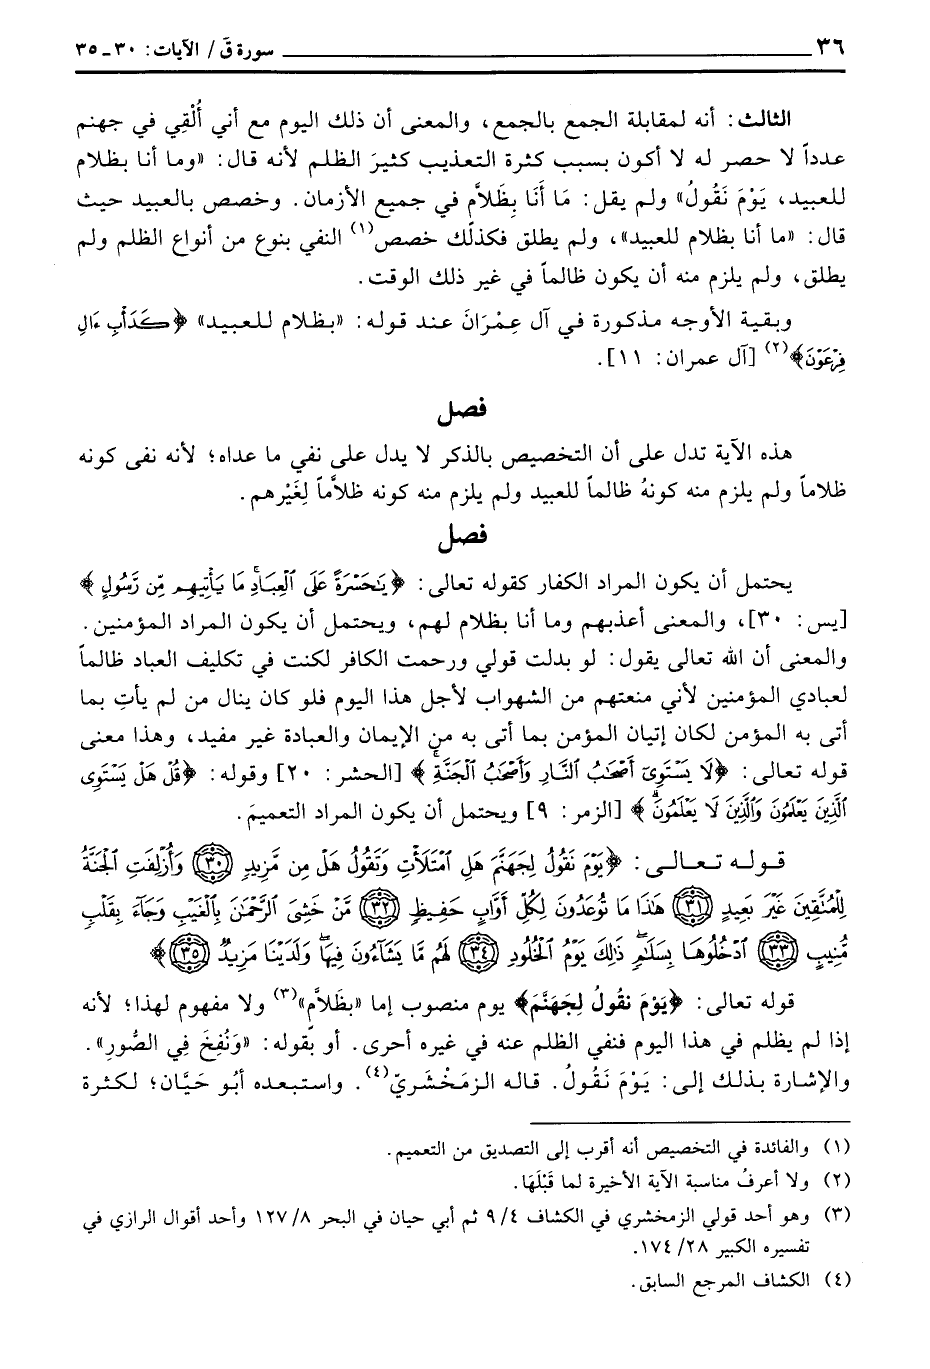 ٣٦ سورة قَ / الآيات: ٣٠ـ٣٥
الثالث: أنه لمقابلة الجمع بالجمع، والمعنى أن ذلك اليوم مع أني أُلْقِي في جهنم
عدداً لا حصر له لا أكون بسبب كثرة التعذيب كثيرَ الظلم لأنه قال: «وما أنا بظلام
للعبيد، يَوْمَ نَقُولُ» ولم يقل: مَا أَنَا بِظَلاَّم في جميع الأزمان. وخصص بالعبيد حيث
قال: «ما أنا بظلام للعبيد»، ولم يطلق فكذلك خصص(١) النفي بنوع من أنواع الظلم ولم
يطلق، ولم يلزم منه أن يكون ظالماً في غير ذلك الوقت.
وبقية الأوجه مذكورة في آل عِمْرَانَ عند قوله: «بظلام للعبيد» ﴿كَدَأْبِ ءَالِ
فِرْعَوْنَ﴾(٢) [آل عمران: ١١].
فصل
هذه الآية تدل على أن التخصيص بالذكر لا يدل على نفي ما عداه؛ لأنه نفى كونه
ظلاماً ولم يلزم منه كونهُ ظالماً للعبيد ولم يلزم منه كونه ظلاَّماً لِغَيْرهم.
فصل
يحتمل أن يكون المراد الكفار كقوله تعالى: ﴿يَٰحَسْرَةً عَلَى ٱلْعِبَادِۚ مَا يَأْتِيهِم مِّن رَّسُولٍ﴾
[يس: ٣٠]، والمعنى أعذبهم وما أنا بظلام لهم، ويحتمل أن يكون المراد المؤمنين.
والمعنى أن الله تعالى يقول: لو بدلت قولي ورحمت الكافر لكنت في تكليف العباد ظالماً
لعبادي المؤمنين لأني منعتهم من الشهواب لأجل هذا اليوم فلو كان ينال من لم يأتِ بما
أتى به المؤمن لكان إتيان المؤمن بما أتى به من الإيمان والعبادة غير مفيد، وهذا معنى
قوله تعالى: ﴿لَا يَسْتَوِىٓ أَصْحَٰبُ ٱلنَّارِ وَأَصْحَٰبُ ٱلْجَنَّةِۚ﴾ [الحشر: ٢٠] وقوله: ﴿قُلْ هَلْ يَسْتَوِى
ٱلَّذِينَ يَعْلَمُونَ وَٱلَّذِينَ لَا يَعْلَمُونَۗ﴾ [الزمر: ٩] ويحتمل أن يكون المراد التعميمَ.
قوله تعالى: ﴿يَوْمَ نَقُولُ لِجَهَنَّمَ هَلِ ٱمْتَلَأْتِ وَتَقُولُ هَلْ مِن مَّزِيدٍ ﴿٣٠﴾ وَأُزْلِفَتِ ٱلْجَنَّةُ
لِلْمُتَّقِينَ غَيْرَ بَعِيدٍ ﴿٣١﴾ هَٰذَا مَا تُوعَدُونَ لِكُلِّ أَوَّابٍ حَفِيظٍ ﴿٣٢﴾ مَّنْ خَشِىَ ٱلرَّحْمَٰنَ بِٱلْغَيْبِ وَجَآءَ بِقَلْبٍ
مُّنِيبٍ ﴿٣٣﴾ ٱدْخُلُوهَا بِسَلَٰمٍۖ ذَٰلِكَ يَوْمُ ٱلْخُلُودِ ﴿٣٤﴾ لَهُم مَّا يَشَآءُونَ فِيهَاۖ وَلَدَيْنَا مَزِيدٌ ﴿٣٥﴾﴾
قوله تعالى: ﴿يَوْمَ نقُولُ لِجَهَنَّمَ﴾ يوم منصوب إما «بظَلاَّمٍ»(٣) ولا مفهوم لهذا؛ لأنه
إذا لم يظلم في هذا اليوم فنفي الظلم عنه في غيره أحرى. أو بقوله: «وَنُفِخَ فِي الصُّورِ».
والإشارة بذلك إلى: يَوْمَ نَقُولُ. قاله الزمَخْشَريّ(٤). واستبعده أبُو حَيَّان؛ لكثرة
(١) والفائدة في التخصيص أنه أقرب إلى التصديق من التعميم.
(٢) ولا أعرفُ مناسبة الآية الأخيرة لما قَبْلَهَا.
(٣) وهو أحد قولي الزمخشري في الكشاف ٩/٤ ثم أبي حيان في البحر ١٢٧/٨ وأحد أقوال الرازي في
تفسيره الكبير ١٧٤/٢٨.
(٤) الكشاف المرجع السابق.